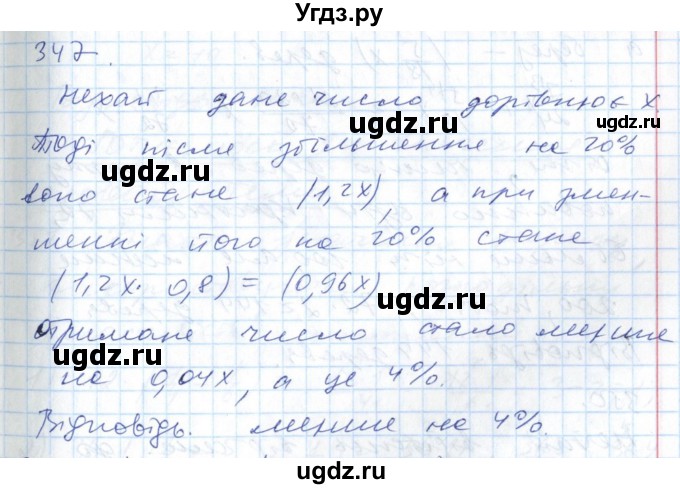 Угдз.ру
347.
Нехай дане число дорівнює x.
Тоді після збільшення на 20%
воно стане (1,2x), а при змен-
шенні його на 20% стане
(1,2x · 0,8) = (0,96x)
Отримане число стало менше
на 0,04x, а це 4%.
Відповідь. менше на 4%.
ugdz.ru
ugdz.ru
ugdz.ru
ugdz.ru
ugdz.ru
ugdz.ru
ugdz.ru
ugdz.ru